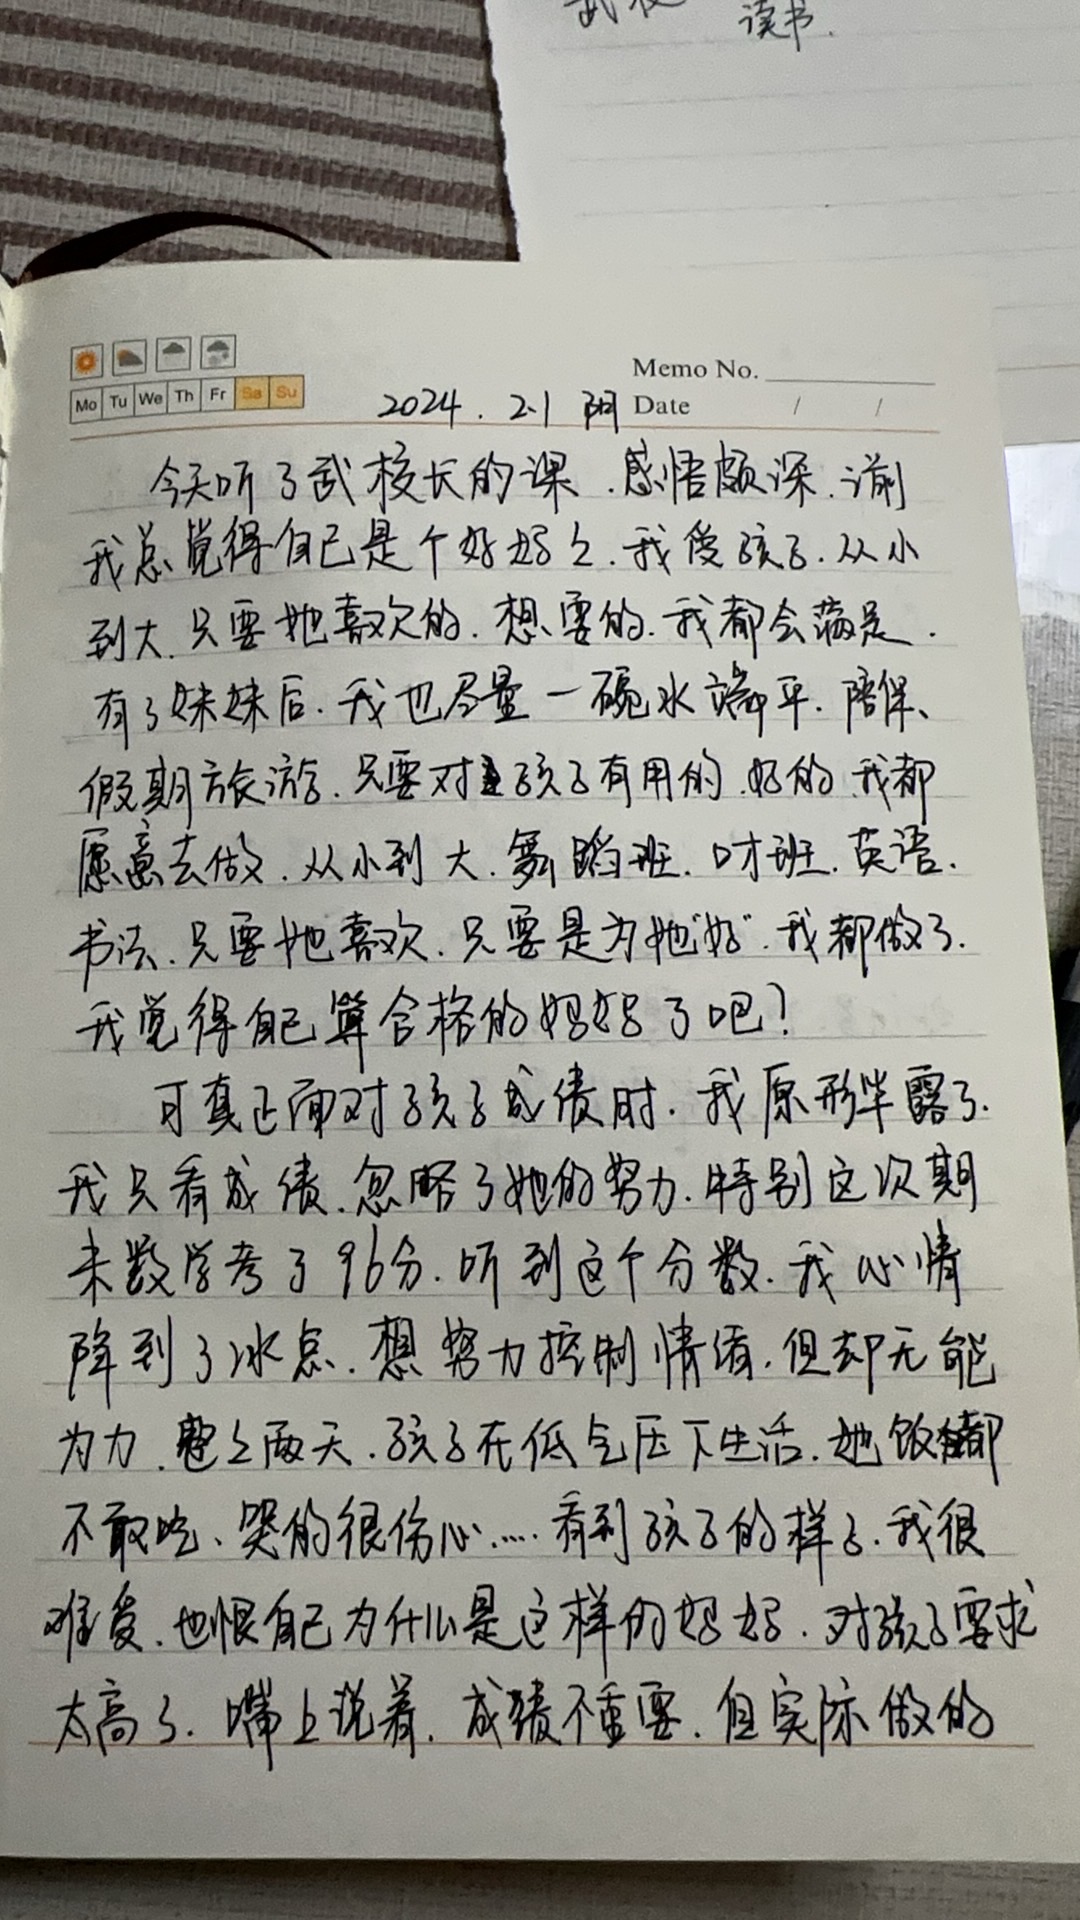 读书.
Memo No.
Mo Tu We Th Fr Sa Su
2024.2.1 阴 Date / /
今天听了武校长的课.感悟颇深.课前
我总觉得自己是个好妈妈.我爱孩子.从小
到大.只要她喜欢的.想要的.我都会满足.
有了妹妹后.我也尽量一碗水端平.陪伴、
假期旅游.只要对孩子有用的.好的.我都
愿意去做.从小到大.舞蹈班.口才班.英语.
书法.只要她喜欢.只要是为她"好".我都做了.
我觉得自己算合格的妈妈了吧?
可真正面对孩子成绩时.我原形毕露了.
我只看成绩.忽略了她的努力.特别这次期
末数学考了96分.听到这个分数.我心情
降到了冰点.想努力控制情绪.但却无能
为力.整整两天.孩子在低气压下生活.她饭都
不敢吃、哭的很伤心……看到孩子的样子.我很
难受.也恨自己为什么是这样的妈妈.对孩子要求
太高了.嘴上说着.成绩不重要.但实际做的